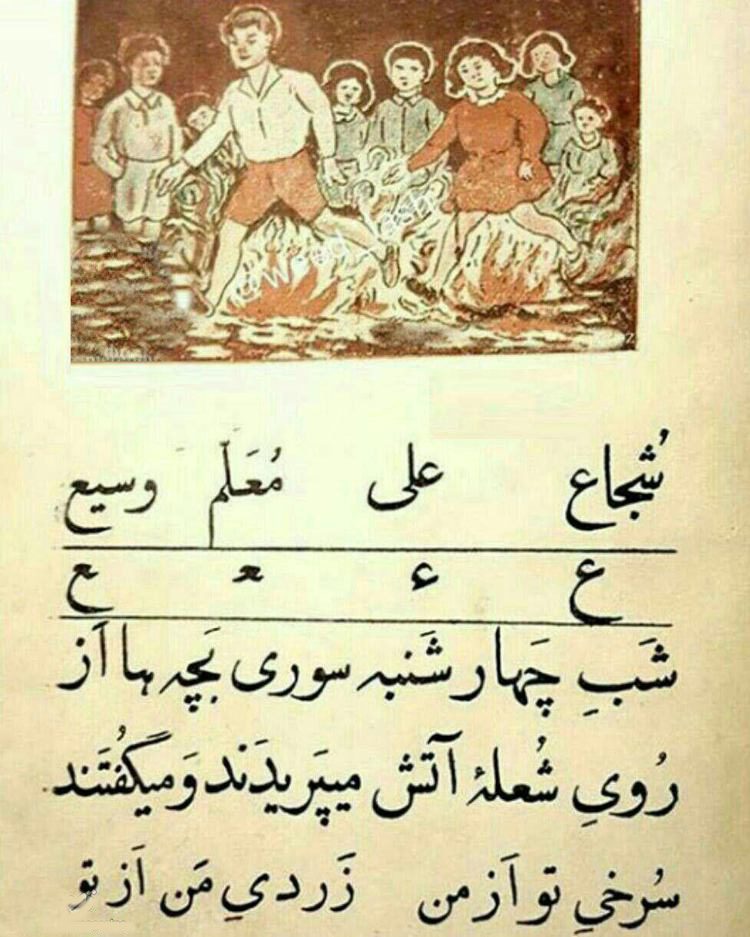 شُجاع علی مُعَلِّم وسیع
ع ﻋ ﻌ ﻊ
شَبِ چَهار شَنبه سوری بَچه ها اَز
رُویِ شُعلهٔ آتش میپَریدَند وَ میگُفتَند
سُرخیِ تو اَز من زَردیِ مَن اَز تو